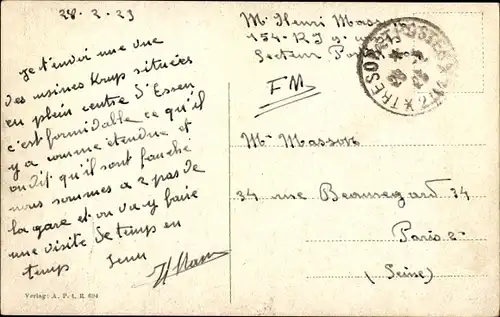 28-2-23
je t'envoi une vue
des usines Krup situées
en plein centre d'Essen
c'est formidable ce qu'il
y a comme étendue et
on dit qu'il sont fauché
nous sommes a 2 pas de
la gare et on va y faire
une visite de temps en
temps
Verlag: A. P. i. E. 624
Mr Henri Masson
154 - R I
Secteur
FM
TRESOR ET POSTES
Mr Masson
34 rue Beauregard 34
Paris 2e
(Seine)